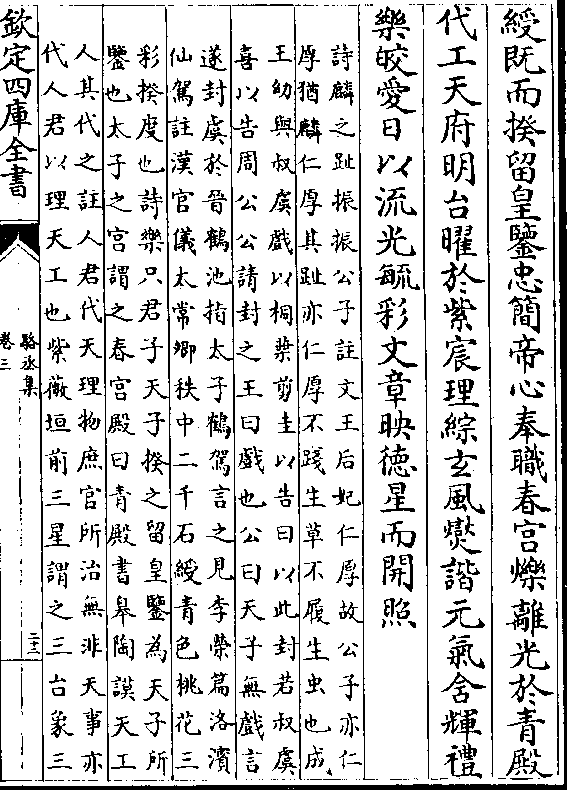 綬既而揆留皇鑒忠簡帝心奉職春宮爍離光於青殿
代工天府明台曜於紫宸理綜玄風爕諧元氣含輝禮
樂皎愛日以流光毓彩文章映德星而開照
詩麟之趾振振公子註文王后妃仁厚故公子亦仁
厚猶麟仁厚其趾亦仁厚不踐生草不履生虫也成
王幼與叔虞戲以桐葉剪圭以告曰以此封若叔虞
喜以告周公公請封之王曰戲也公曰天子無戲言
遂封虞於晉鶴池指太子鶴駕言之見李榮篇洛濱
仙駕註漢官儀太常卿秩中二千石綬青色桃花三
彩揆度也詩樂只君子天子揆之留皇鑒為天子所
鑒也太子之宮謂之春宮殿曰青殿書皐陶謨天工
人其代之註人君代天理物庶官所治無非天事亦
代人君以理天工也紫薇垣前三星謂之三台象三
欽定四庫全書
駱丞集
卷三
二十二